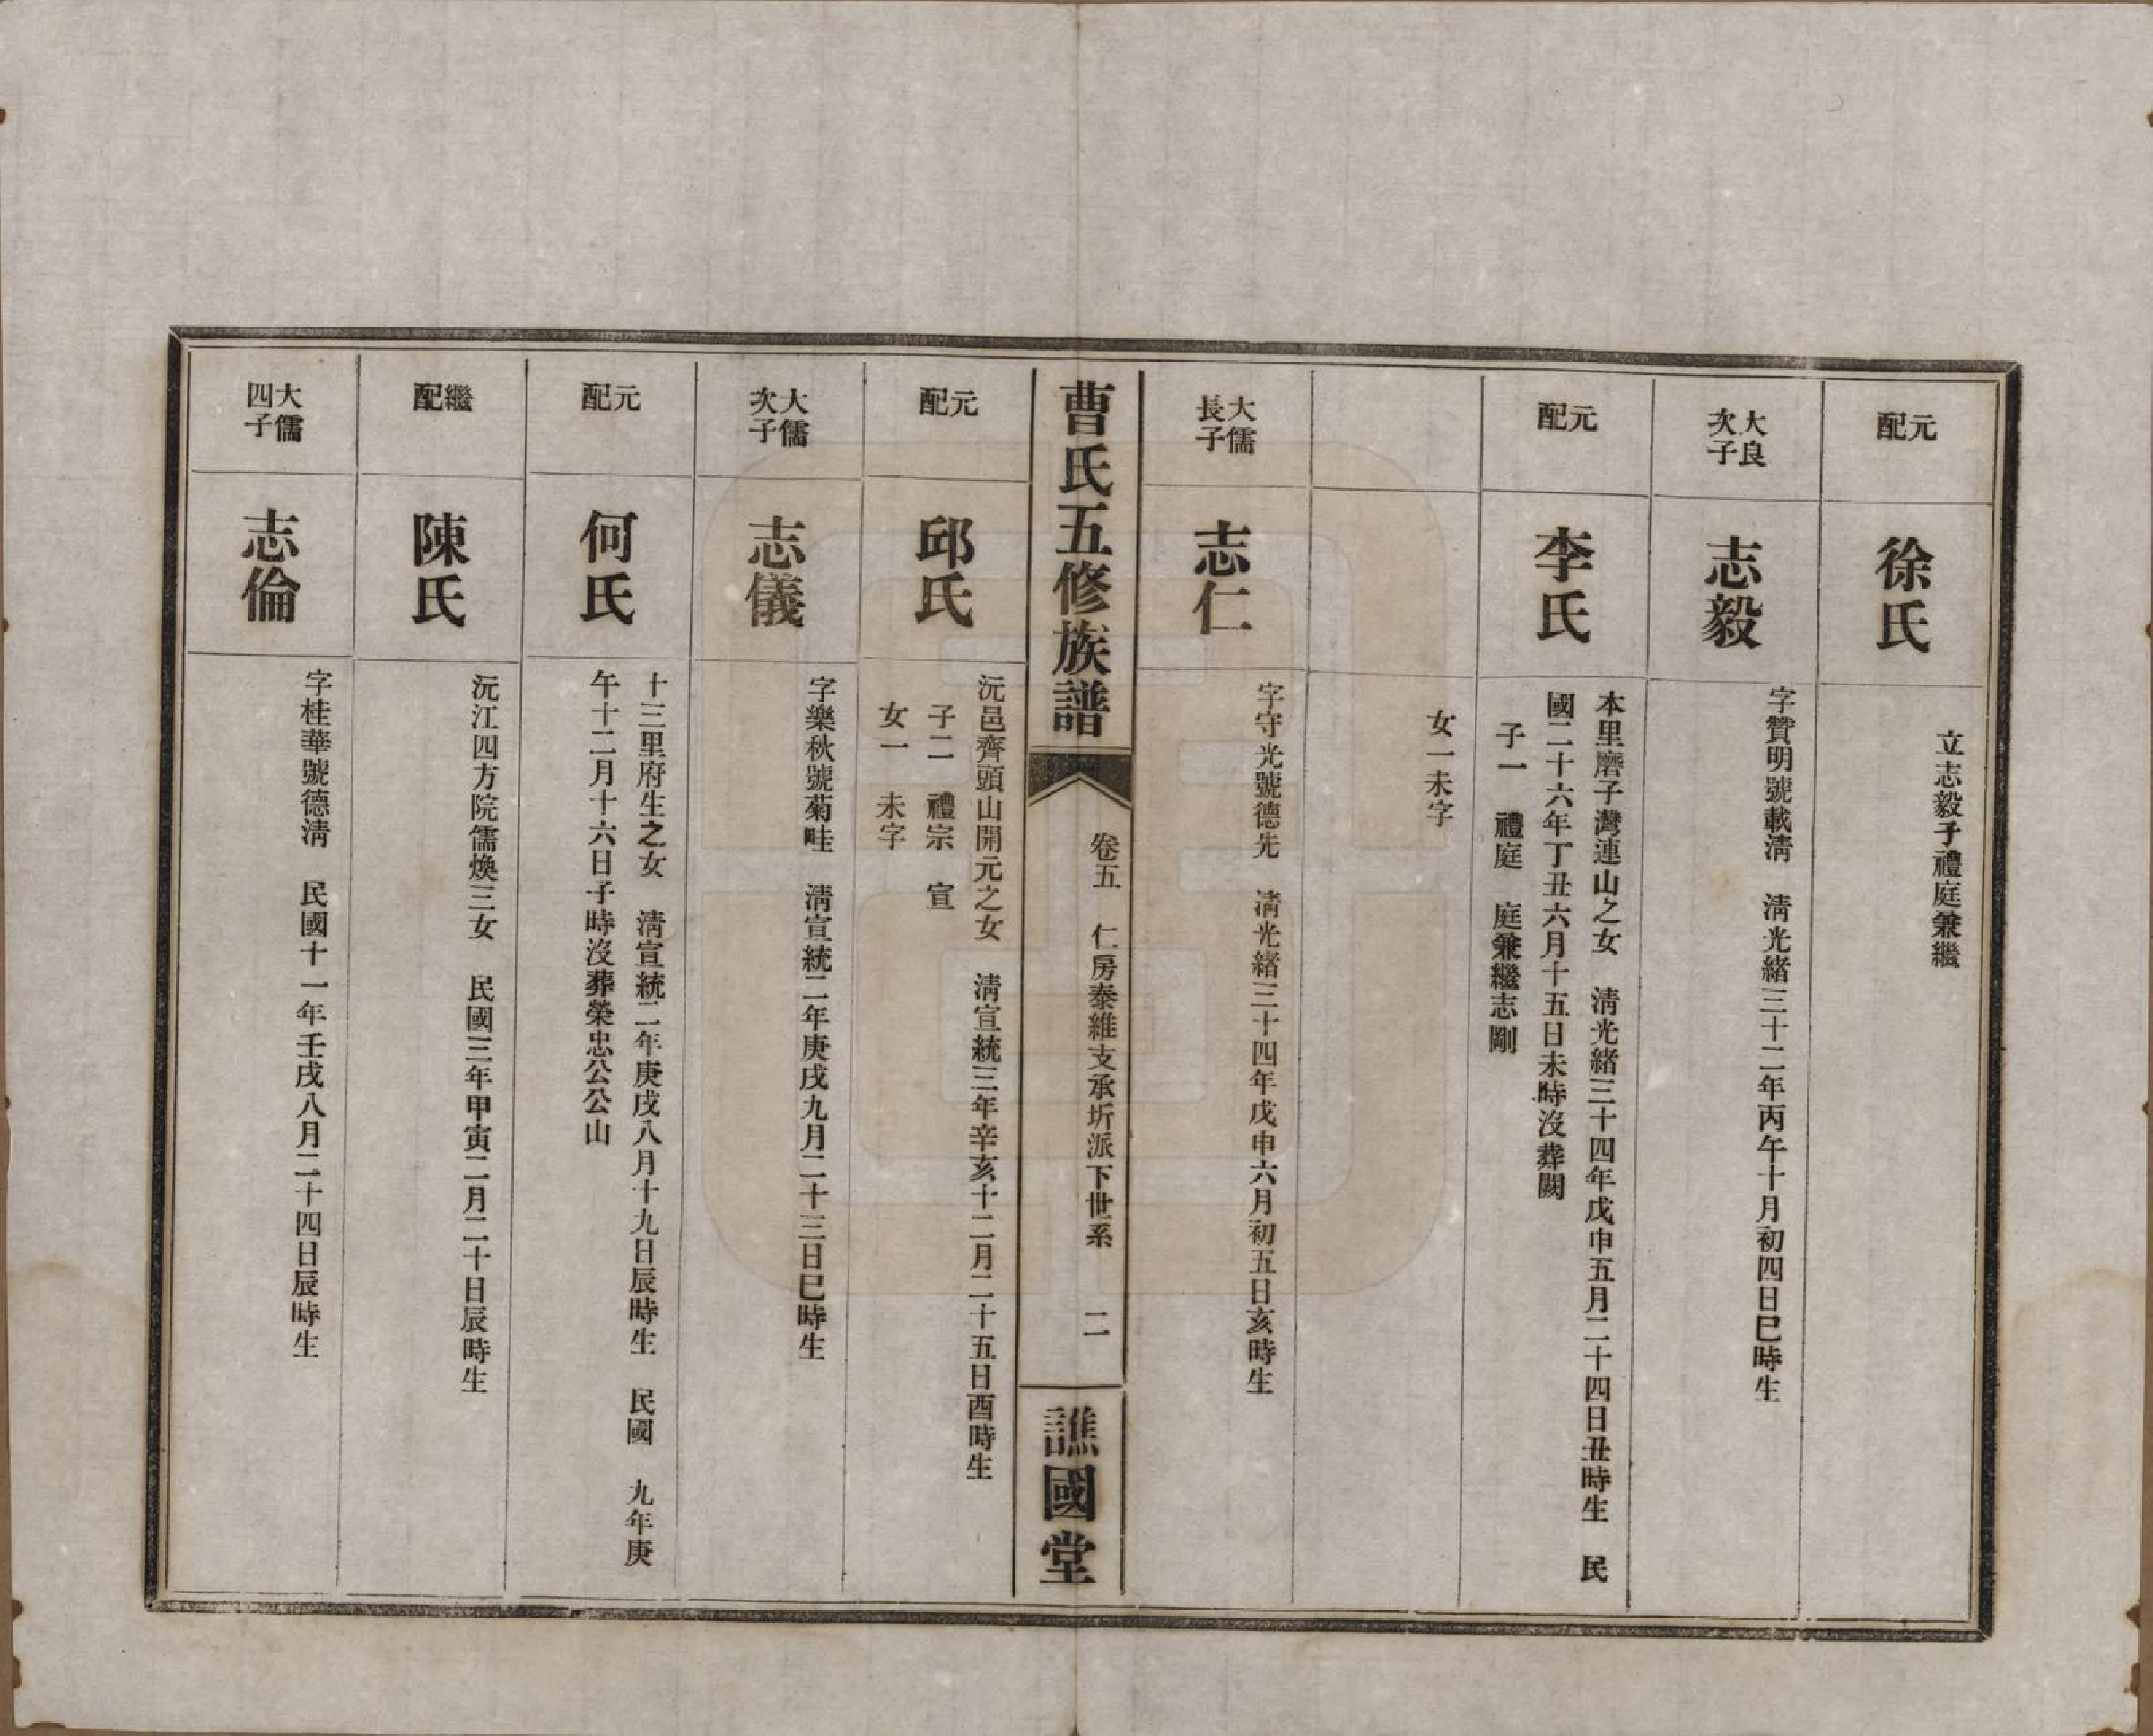 元配
徐氏
立志毅子禮庭兼繼
大良次子
志毅
字贊明號載淸　淸光緒三十二年丙午十月初四日巳時生
元配
李氏
本里磨子灣連山之女　淸光緒三十四年戊申五月二十四日丑時生　民
國二十六年丁丑六月十五日未時沒葬闕
子一　禮庭　庭兼繼志剛
女一未字
大儒長子
志仁
字守光號德先　淸光緒三十四年戊申六月初五日亥時生
曹氏五修族譜
卷五　仁房泰維支承圻派下世系　二
譙國堂
元配
邱氏
沅邑齊頭山開元之女　淸宣統三年辛亥十二月二十五日酉時生
子二　禮宗　宣
女一　未字
大儒次子
志儀
字樂秋號菊畦　淸宣統二年庚戌九月二十三日巳時生
元配
何氏
十三里府生之女　淸宣統二年庚戌八月十九日辰時生　民國　九年庚
午十二月十六日子時沒葬榮忠公公山
繼配
陳氏
沅江四方院儒煥三女　民國三年甲寅二月二十日辰時生
大儒四子
志倫
字桂華號德淸　民國十一年壬戌八月二十四日辰時生